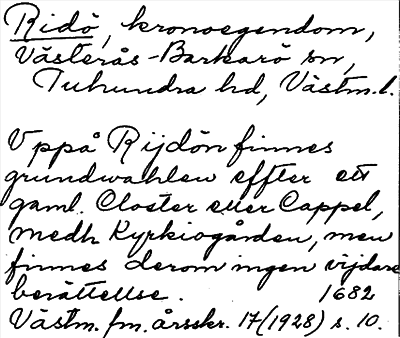 Ridö, kronoegendom,
Västerås-Barkarö sn,
Tuhundra hd, Västm.l.
Vppå Rijdön finnes
grundwahlen effter ett
gaml. Closter eller Cappel,
medh Kyrkiogården, men
finnes derom ingen vijdare
berättellse. 1682
Västm. fm. årsskr. 17 (1928) s. 10.